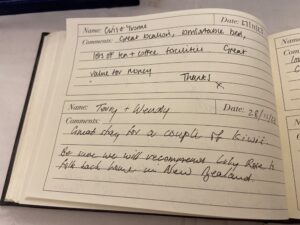 Name: Chris + Yvonne Date:
Comments: Great location, comfortable bed,
lots of tea + coffee facilities Great
value for money
Thanks x
Name: Terry + Wendy Date: 28/
Comments:
Great stay for a couple of kiwis.
Be sure we will recommend Lily Rose to
folk back home in New Zealand.